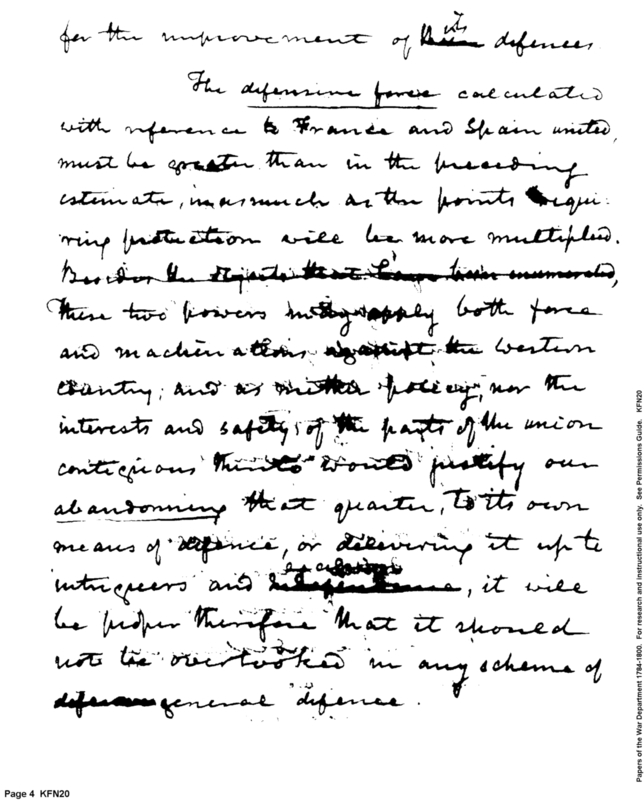 for the improvement of its defences
The defensive force calculated
with reference to France and Spain united,
must be greater than in the preceding
estimate, inasmuch as the points requi-
ring protection will be more multiplied.
Besides the objects that have been enumerated,
These two powers may apply both force
and machinations against the western
country; and as neither policy, nor the
interests and safety of the parts of the union
contiguous thereto would justify our
abandonning that quarter, to its own
means of defence, or delivering it up to
intrigeers and, it will
be proper therefore that it should
not be overlooked in any scheme of
general defence.
Page 4 KFN20
Papers of the War Department 1784-1800. For research and instructional use only. See Permissions Guide. KFN20